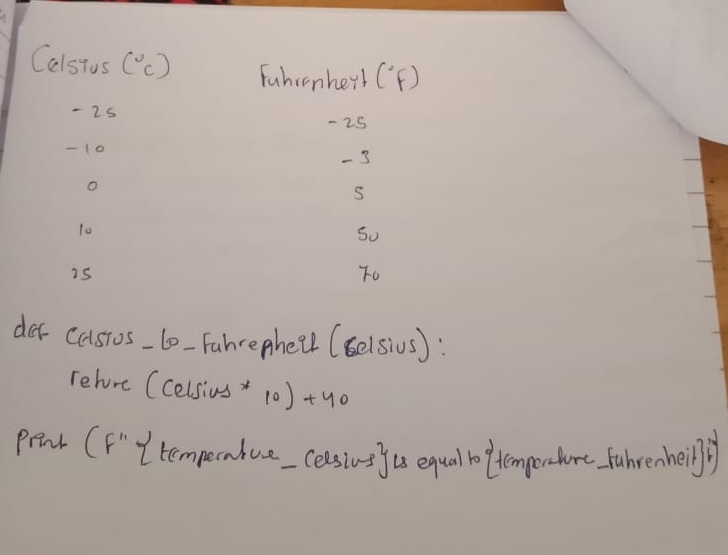 Celsius (°C) Fahrenheit (°F)
-25 -25
-10 -3
0 5
10 50
25 70
def Celsius_to_Fahrenheit (Celsius):
return (Celsius * 10) + 40
Print (F" {temperature_Celsius} is equal to {temperature_Fahrenheit}F")